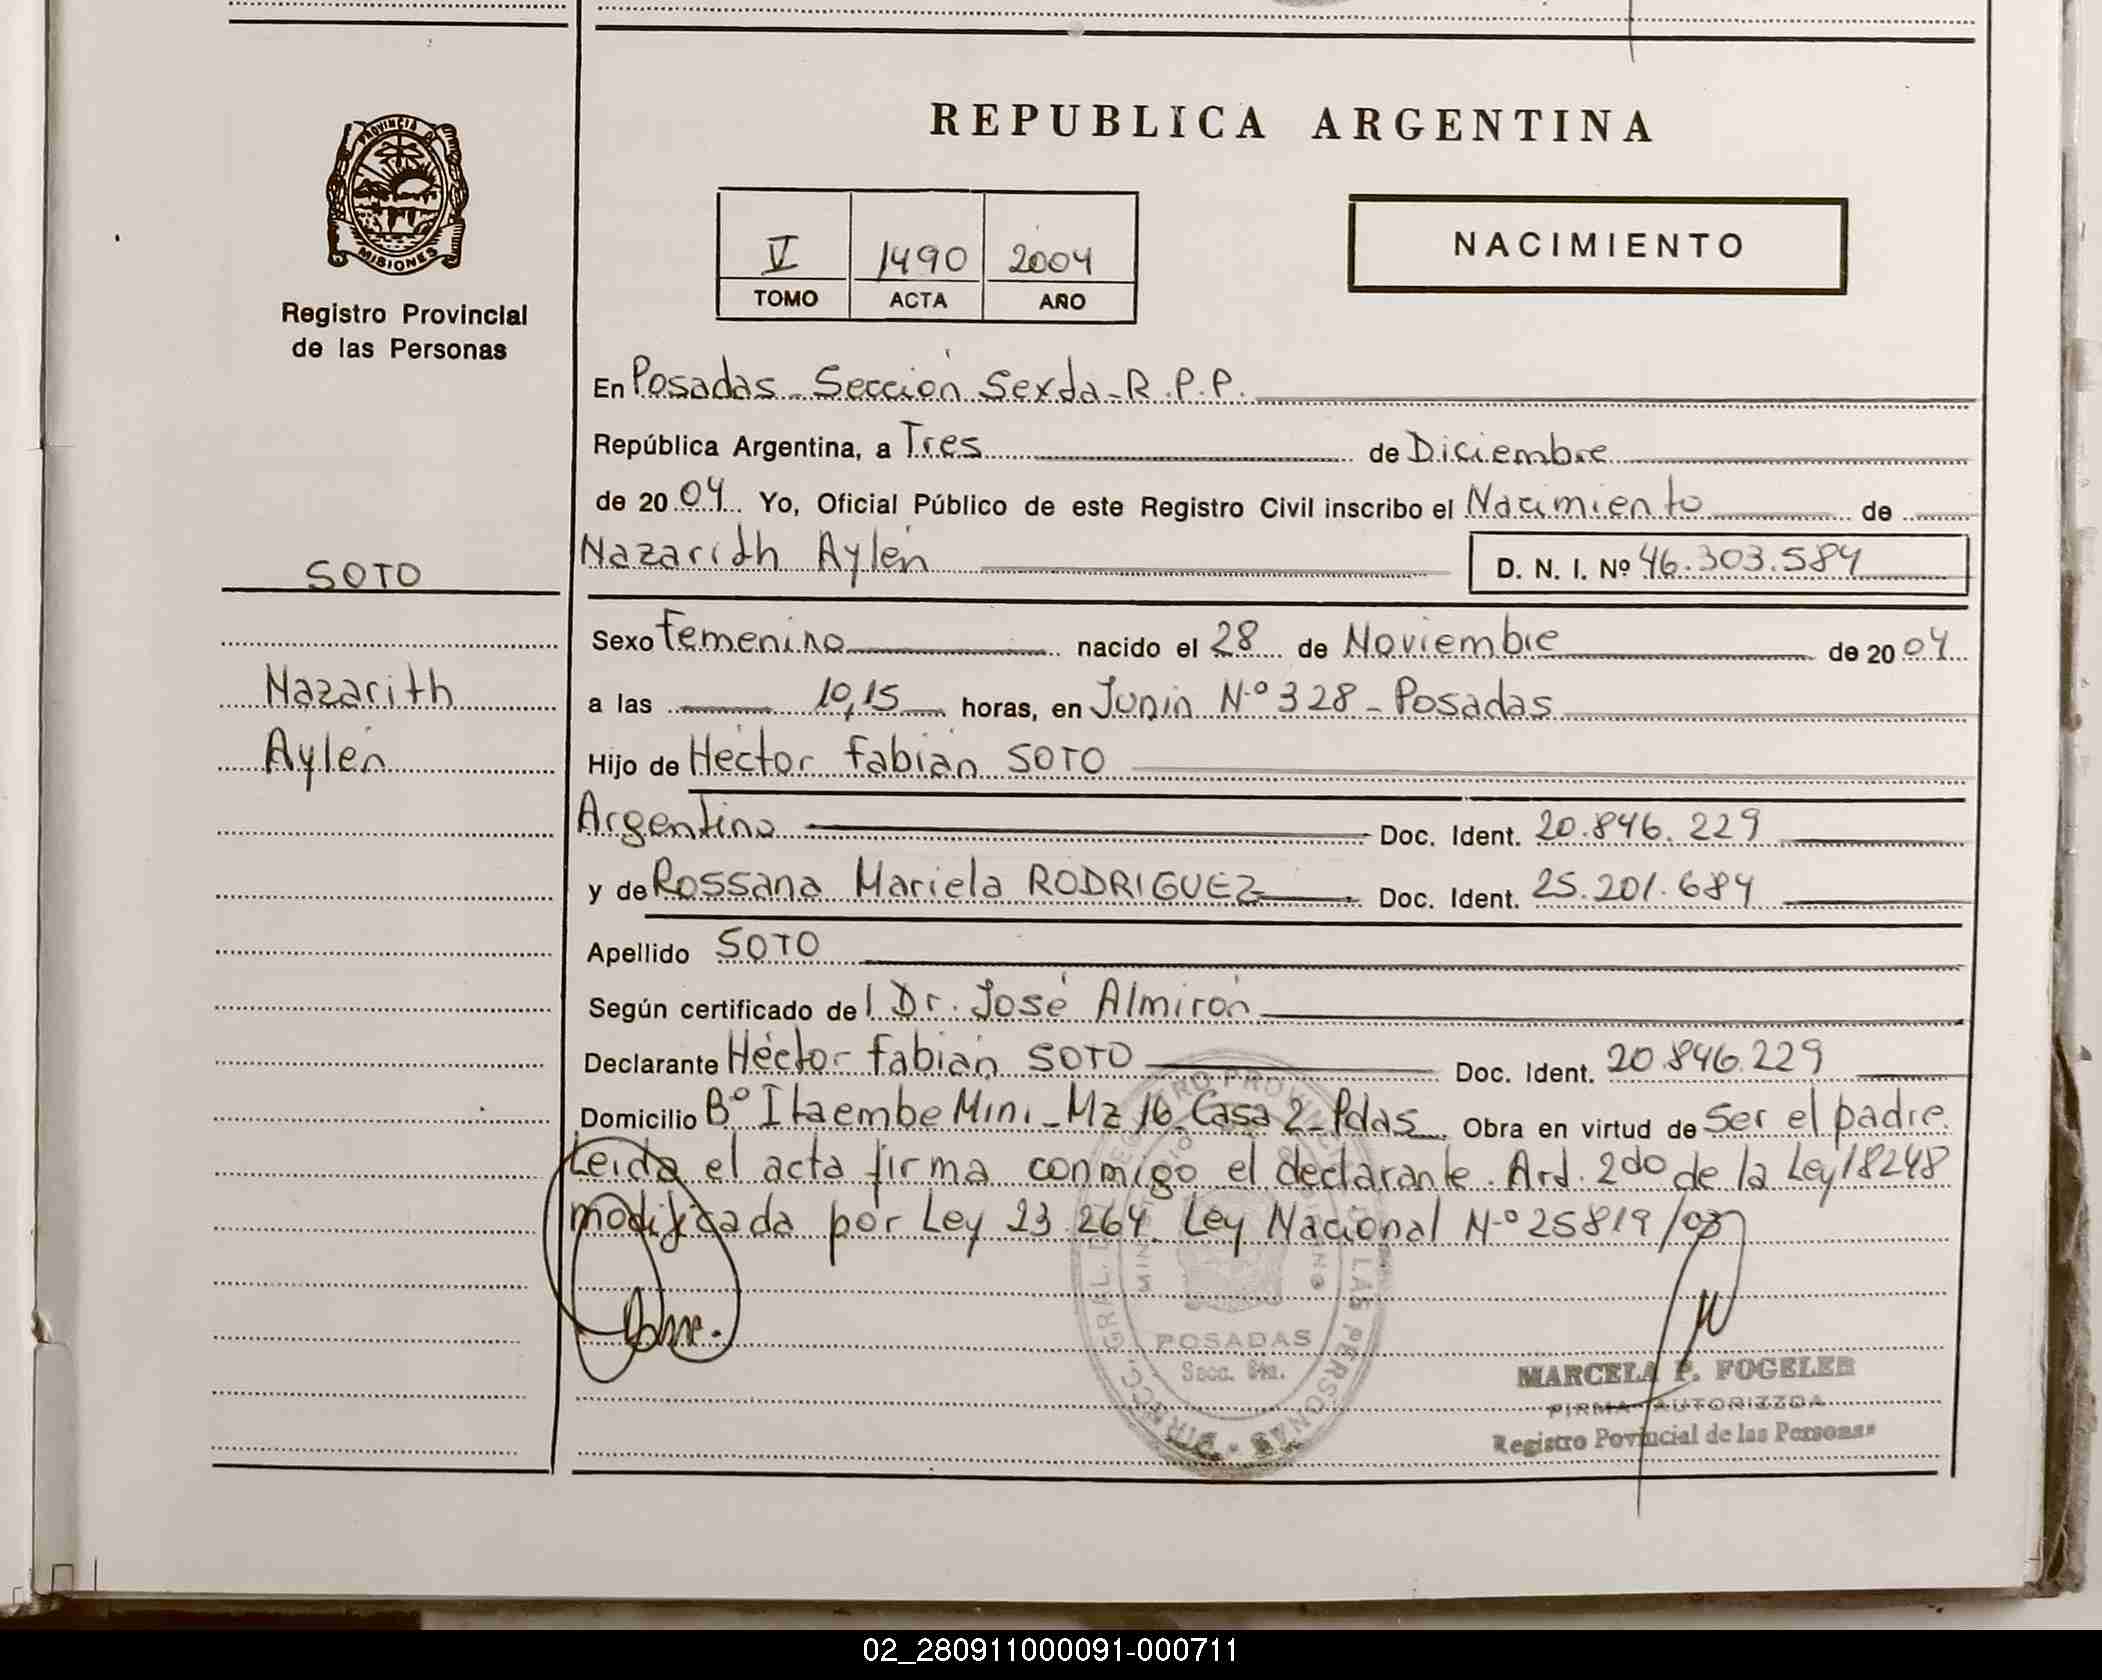 REPUBLICA ARGENTINA
PROVINCIA D
MISIONES
Registro Provincial
de las Personas
V 1490 2004
TOMO ACTA AÑO
NACIMIENTO
En Posadas - Sección Sexta - R.P.P.
República Argentina, a Tres de Diciembre
de 2004 Yo, Oficial Público de este Registro Civil inscribo el Nacimiento de
Nazarith Aylén D. N. I. Nº 46.303.584
SOTO
Nazarith
Aylén
Sexo Femenino nacido el 28 de Noviembre de 2004
a las 10,15 horas, en Junín Nº 328 - Posadas
Hijo de Héctor Fabián SOTO
Argentino Doc. Ident. 20.846.229
y de Rossana Mariela RODRIGUEZ Doc. Ident. 25.201.684
Apellido SOTO
Según certificado del Dr. José Almirón
Declarante Héctor Fabián SOTO Doc. Ident. 20.846.229
Domicilio Bº Itaembe Mini - Mz 16 Casa 2 - Pdas. Obra en virtud de ser el padre.
Leída el acta firma conmigo el declarante. Art. 2do de la Ley 18248
modificada por Ley 23.264. Ley Nacional Nº 25819/03
POSADAS
Secc. 6ta.
MARCELA P. FOGELER
FIRMA AUTORIZZDA
Registro Povincial de las Personas
02_280911000091-000711